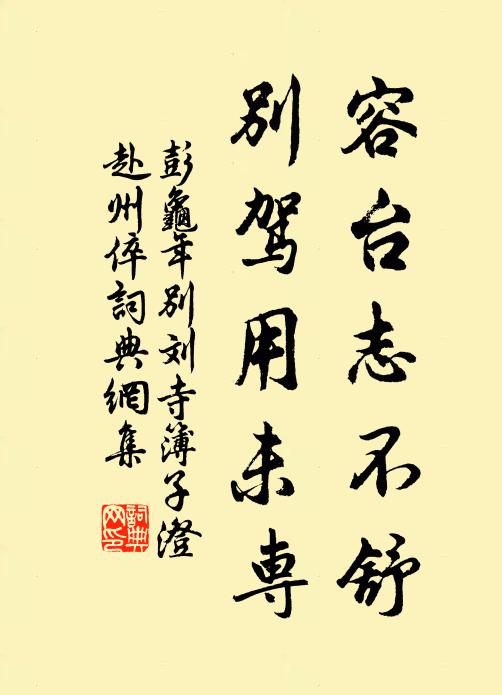 容台志不舒
别驾用未専
彭龜年别刘寺簿子澄
赴州倅詞典網集
詞典
网印